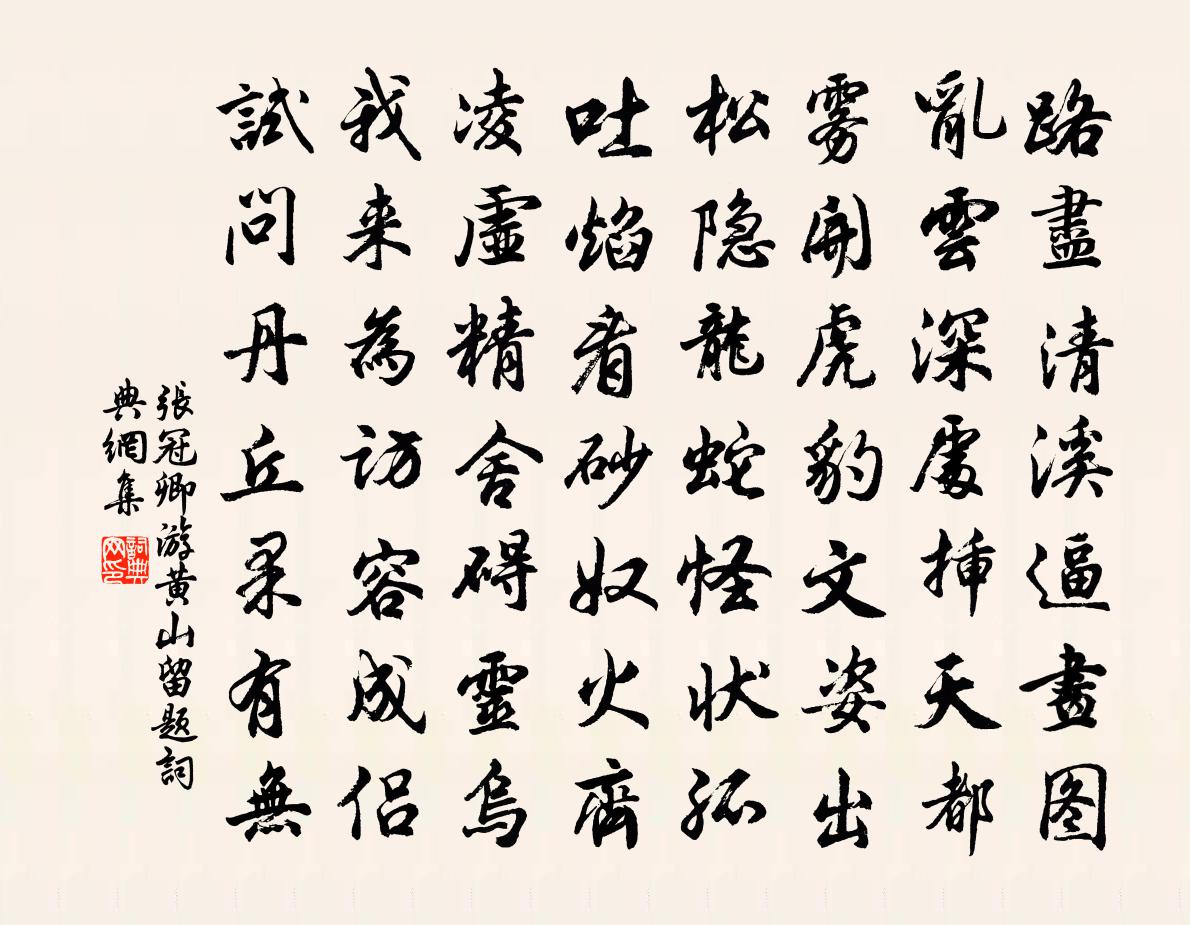 路盡清溪逼畫图
亂雲深處插天都
雾開虎豹文姿出
松隐龍蛇怪状孤
吐焰看砂奴火齊
凌虛精舍碍靈烏
我来為访容成侣
試問丹丘果有無
張冠卿游黄山留题詞
典網集